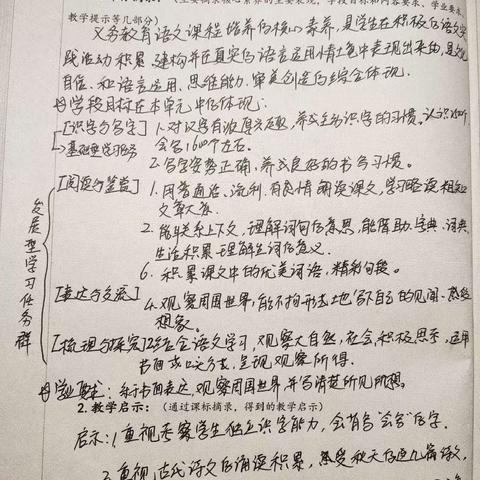 教学提示等几部分）
义务教育语文课程培养的核心素养，是学生在积极的语文实
践活动积累、建构并在真实的语言运用情境中表现出来的，是文化
自信、和语言运用、思维能力、审美创造的综合体现。
学段目标在本单元中的体现：
[识字与写字] 1.对汉字有浓厚兴趣，养成主动识字的习惯。认识
基础型学习任务 会写1600个左右。
2.写字姿势正确，养成良好的书写习惯。
[阅读与鉴赏] 1.用普通话、流利、有感情朗读课文，学习略读，粗知
文章大意。
2.能联系上下文，理解词句的意思，能借助、字典、词典、
生活积累理解生词的意义。
6.积累课文中的优美词语，精彩句段。
[表达与交流] 4.观察周围世界，能不拘形式地写下自己的见闻、感受
想象。
[梳理与探究] 2结合语文学习，观察大自然，社会，积极思考，运用
书面或口头方式，呈现观察所得。
发展型学习任务群
学业要求：乐于书面表达，观察周围世界，并写清楚所见所想。
2.教学启示：（通过课标摘录，得到的教学启示）
启示：1重视考察学生独立识字能力，会写“会写”的字。
2重视古代诗文的诵读积累，感受秋天的这几篇诗文，